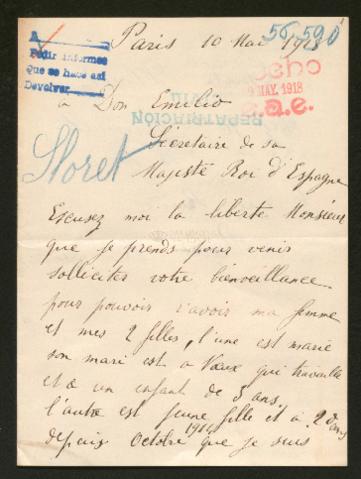 Paris 10 Mai 1918
56,590
A
Pedir informes
que se hace así
Devolver
9 MAY. 1918
à Don Emilio
REPATRIACIÓN
Sécretaire de sa
Majesté Roi d'Espagne
Excusez moi la liberte Monsieur
que je prends pour venir
solliciter votre bienveillance
pour pouvoir r'avoir ma femme
et mes 2 filles, l'une est marie
son mari est a Vaux qui travaille
et a un enfant de 5 ans
l'autre est jeune fille et à 20 ans
depuis Octobre 1914 que je suis